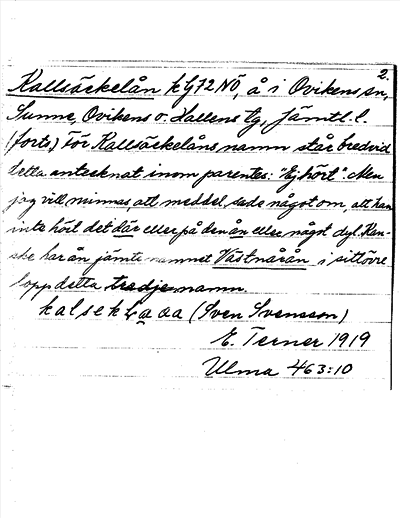 2.
Kallsäckelån kG72NÖ, å i Ovikens sn,
Sunne, Ovikens o. Hallens tg, Jämtl. l.
(forts.) För Kallsäckelåns namn står bredvid
detta antecknat inom parentes: "Ej hört". Men
jag vill minnas, att meddel. sade något om, att han
inte hört det där eller på den ån eller något dyl. Kan-
ske har ån jämte namnet Västnårån i sitt övre
lopp detta tredje namn.
(Sven Svensson)
E. Terner 1919
Ulma 463:10